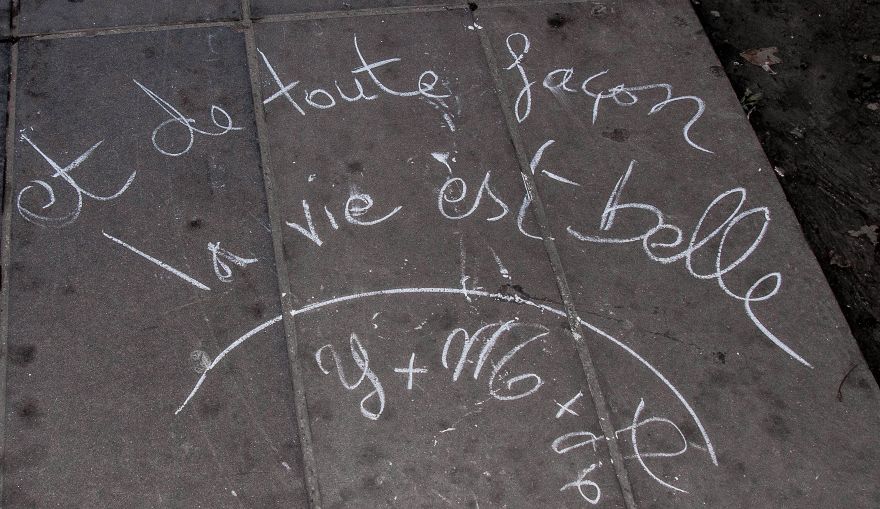 et de toute façon
la vie est belle
Y + M